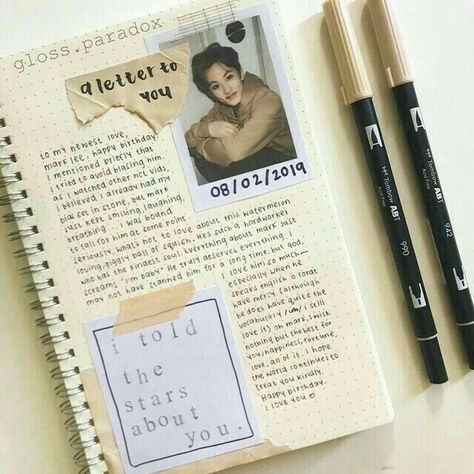 gloss.paradox
a letter to
you
08/02/2019
to my newest love,
mark lee, happy birthday
i mentioned briefly that
i tried to avoid biasing him.
as i watched other nct vids,
i believed i already had my
bias set in stone, but mark
just kept smiling, laughing,
breathing... i was bound
to fall for him at some point.
seriously, what's not to love about this watermelon
loving, giggly ball of squish. He's such a hardworker
who has the kindest soul. Everything about mark just
screams, "i'm baby." He truly deserves everything. i
may not have stanned him for a long time but god,
i love him so much—
especially when he
speaks english o lordt
have mercy (although
he does have quite the
vocabulary /um/ i still
love it) oh mark, i wish
nothing but the best for
you, happiness, fortune,
love, all of it. i hope
the world continues to
treat you kindly.
Happy birthday.
i love you
i told
the
stars
about
you.
Tombow ABT
990
Tombow ABT
942